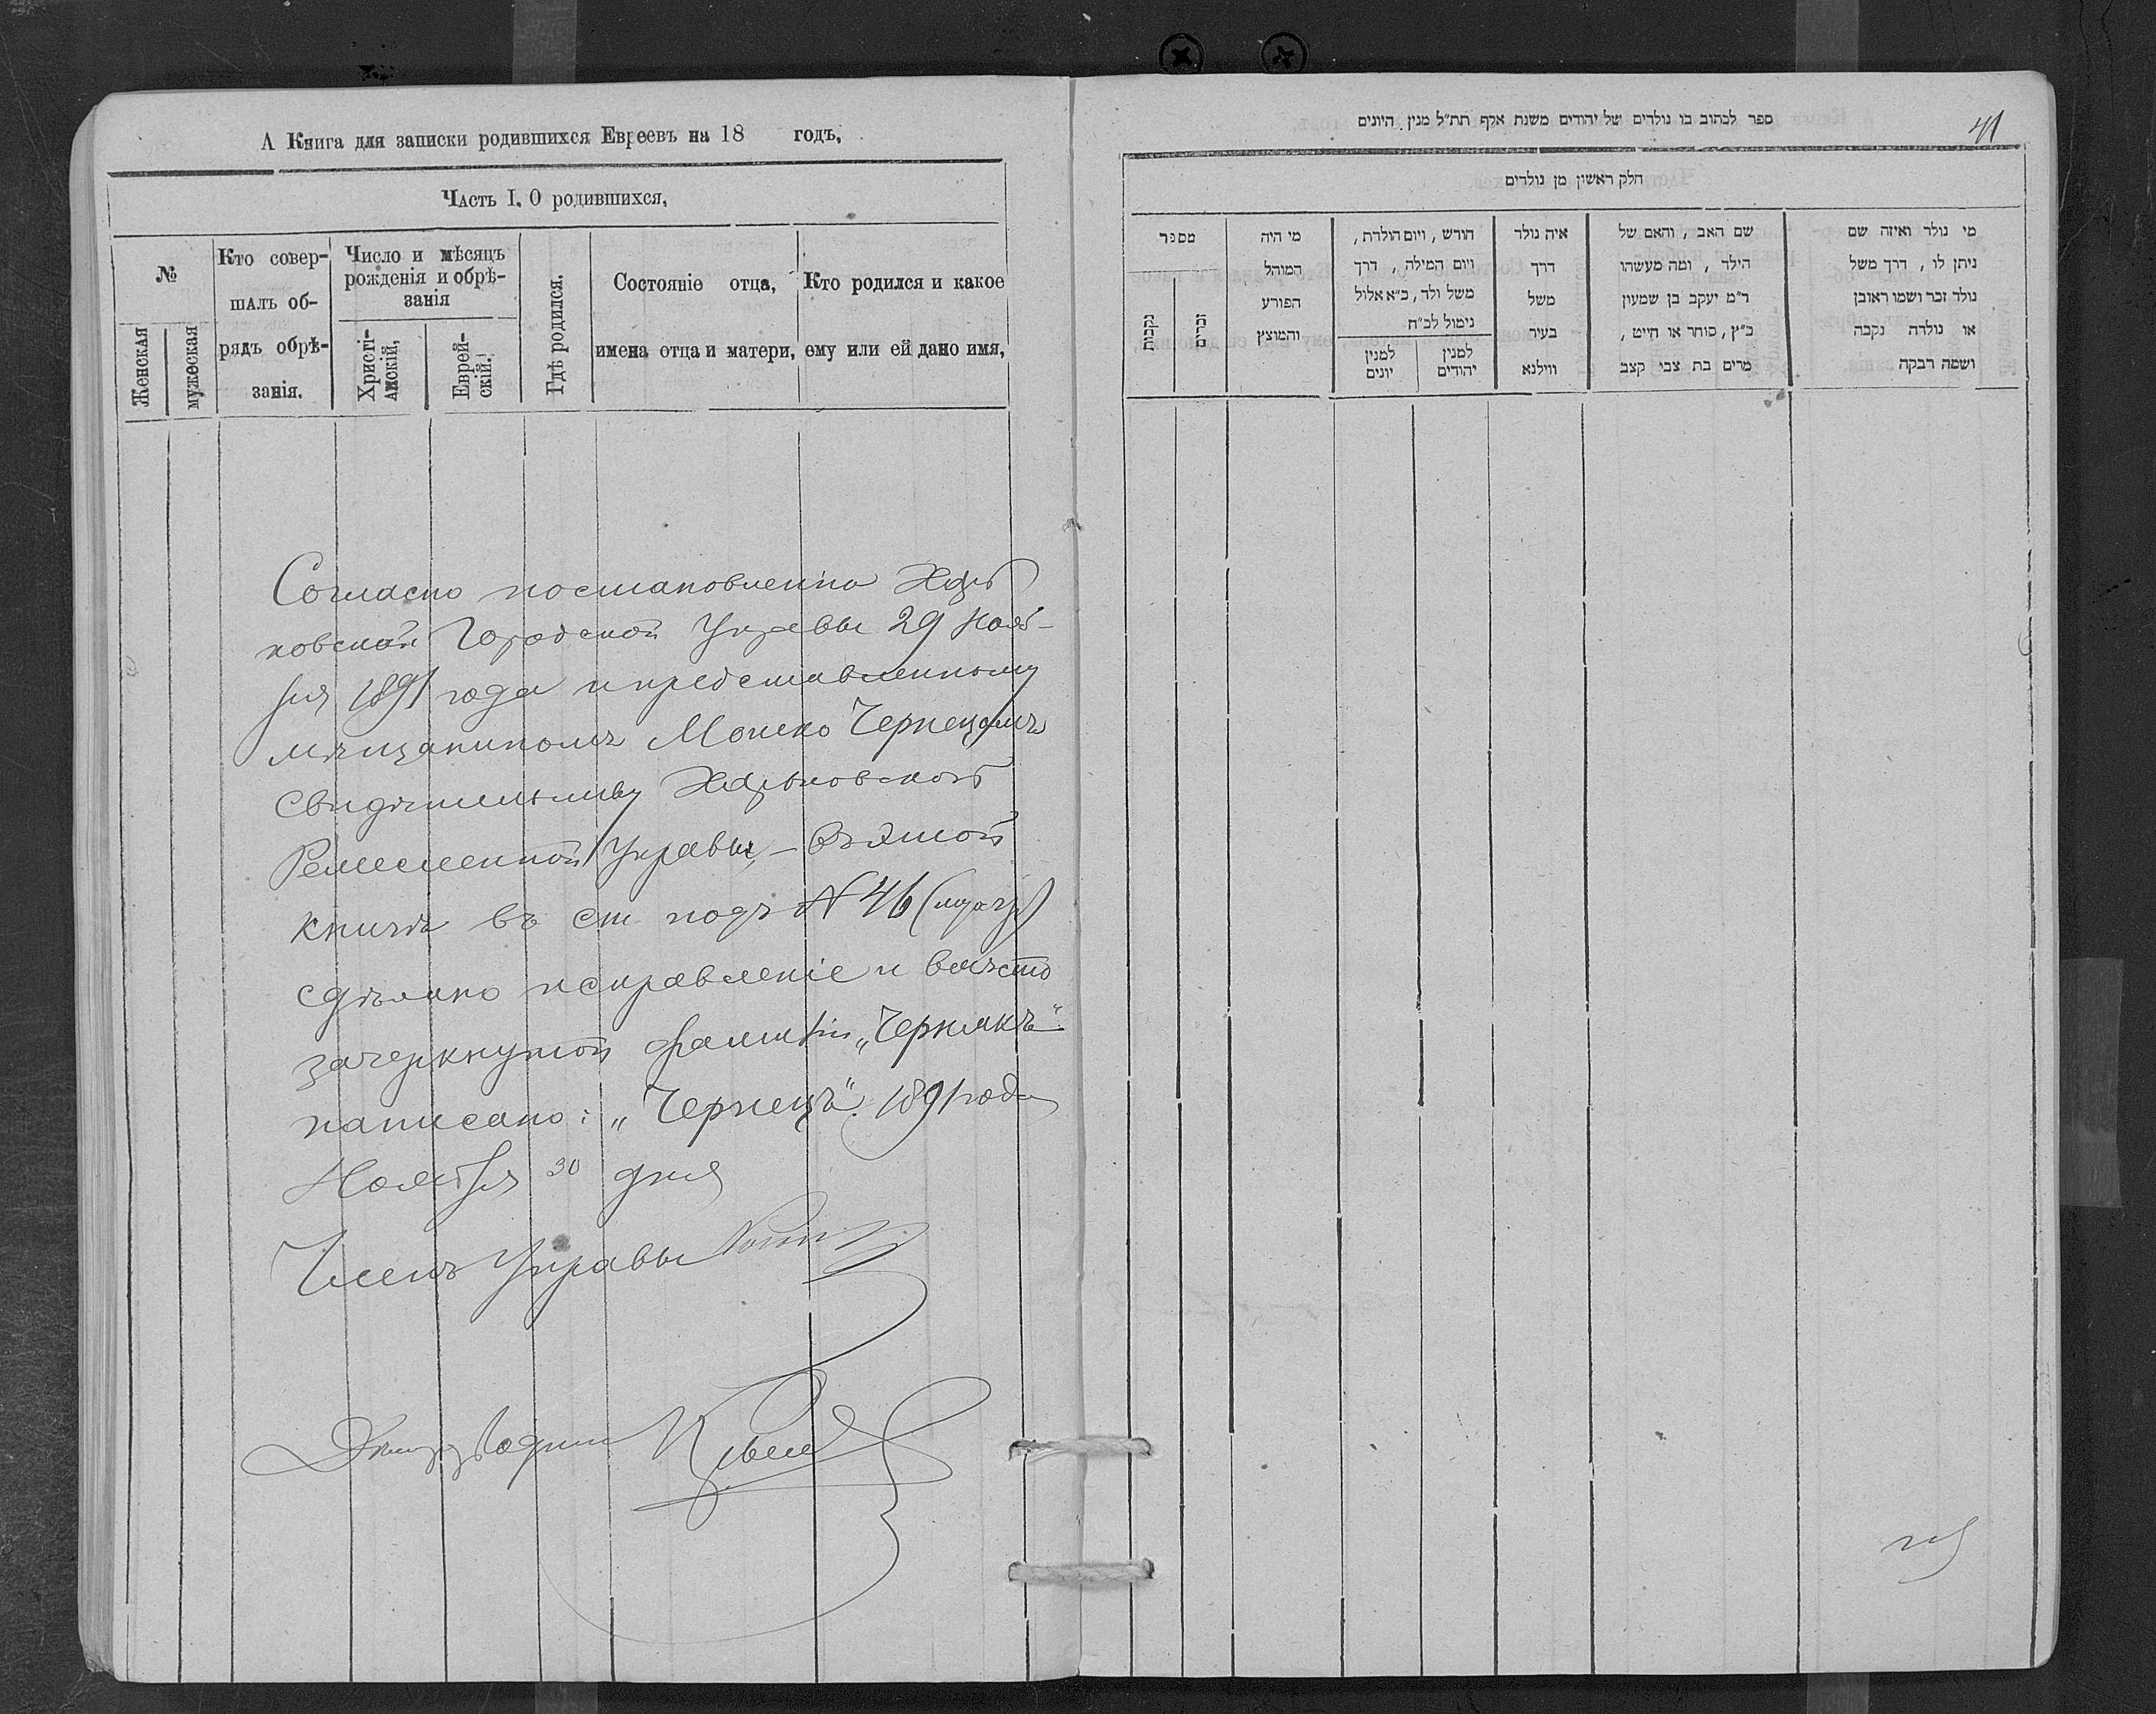 А Книга для записки родившихся Евреевъ на 18 годъ,
Часть I. О родившихся,
№
Женская
мужеская
Кто совер-
шалъ об-
рядъ обрѣ-
занія.
Число и мѣсяцъ
рожденія и обрѣ-
занія
Христі-
анскій,
Еврей-
скій.
Гдѣ родился.
Состояніе отца,
имена отца и матери,
Кто родился и какое
ему или ей дано имя,
Согласно постановленію Харь
ковской Городской Управы 29 Нояб-
ря 1891 года и представленному
мѣщаниномъ Мошко Чернецомъ
свидѣтельству Харьковской
Ремесленной Управы, – въ этой
книгѣ въ ст. подъ № 46 (муж)
сдѣлано исправленіе и вмѣсто
зачеркнутой фамиліи „Чернякъ"
написано: „Чернецъ". 1891 года
Ноября 30 дня
Членъ Управы
ספר לכתוב בו נולדים של יהודים משנת אלף תת״ל מנין היונים
41
חלק ראשון מן נולדים
מספר
נקבות
זכרים
מי היה
המוהל
הפורע
והמוצץ
חודש, ויום הולדת,
ויום המילה, דרך
משל ולד, כ״א אלול
נימול לכ״ח
למנין
יונים
למנין
יהודים
איה נולד
דרך
משל
בעיר
ווילנא
שם האב, והאם של
הילד, ומה מעשהו
ר״מ יעקב בן שמעון
כ״ץ, סוחר או חייט,
מרים בת צבי קצב
מי נולד ואיזה שם
ניתן לו, דרך משל
נולד זכר ושמו ראובן
או נולדה נקבה
ושמה רבקה